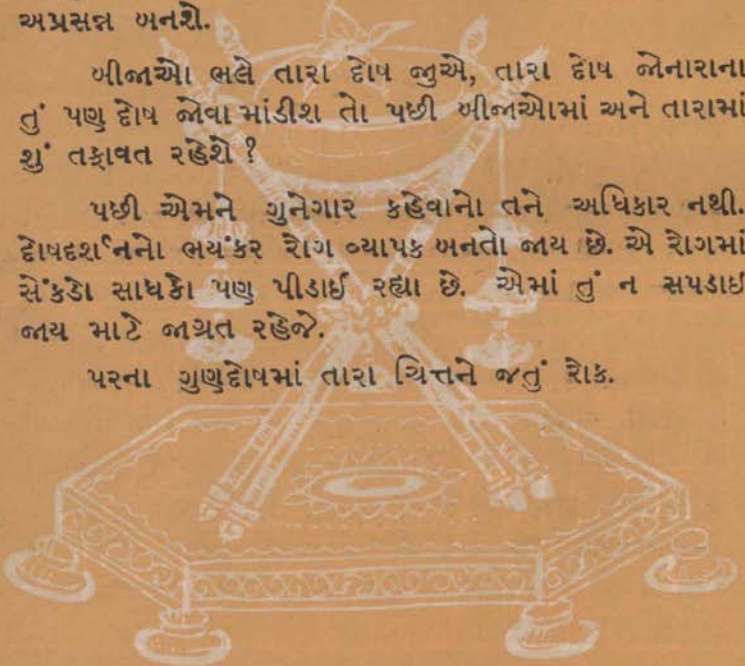 અપ્રસન્ન બનશે.
બીજાઓ ભલે તારા દોષ જુએ, તારા દોષ જોનારાના
તું પણ દોષ જોવા માંડીશ તો પછી બીજાઓમાં અને તારામાં
શું તફાવત રહેશે ?
પછી એમને ગુનેગાર કહેવાનો તને અધિકાર નથી.
દોષદર્શનનો ભયંકર રોગ વ્યાપક બનતો જાય છે. એ રોગમાં
સેંકડો સાધકો પણ પીડાઈ રહ્યા છે. એમાં તું ન સપડાઈ
જાય માટે જાગ્રત રહેજે.
પરના ગુણદોષમાં તારા ચિત્તને જતું રોક.